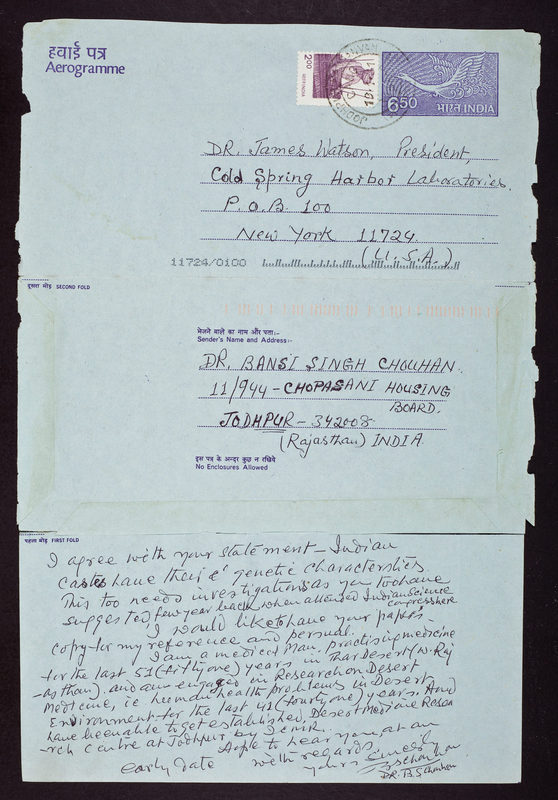 हवाई पत्र
Aerogramme
2.00
भारत INDIA
JODHPUR
6.50
भारत INDIA
DR. James Watson, President,
Cold Spring Harbor Laboratories.
P.O.B. 100
New York 11724.
(U.S.A.)
11724/0100
दूसरा मोड़ SECOND FOLD
भेजने वाले का नाम और पता:-
Sender's Name and Address:-
DR. BANSI SINGH CHOUHAN.
11/944 - CHOPASANI HOUSING
BOARD.
JODHPUR - 342008
(Rajasthan) INDIA.
इस पत्र के अन्दर कुछ न रखिये
No Enclosures Allowed
पहला मोड़ FIRST FOLD
I agree with your statement - Indian
Castes have their genetic characterstics
This too needs investigations as you too have
suggested, few year back, when attended Indian Science
congress here
I would like to have your papers -
copy - for my reference and persual.
I am a medical man, practising medicine
for the last 51 (fifty one) years in Thar Desert (W. Raj
- asthan), and am engaged in Research on Desert
Medicine, ie human health problems in Desert
Environment - for the last 41 (fourty one) years. And
have been able to get established, Desert Medicine Resea
- rch Centre at Jodhpur by ICMR.
Hope to hear you at an
early date with regards.
yours sincerely
DR. B.S. Chouhan